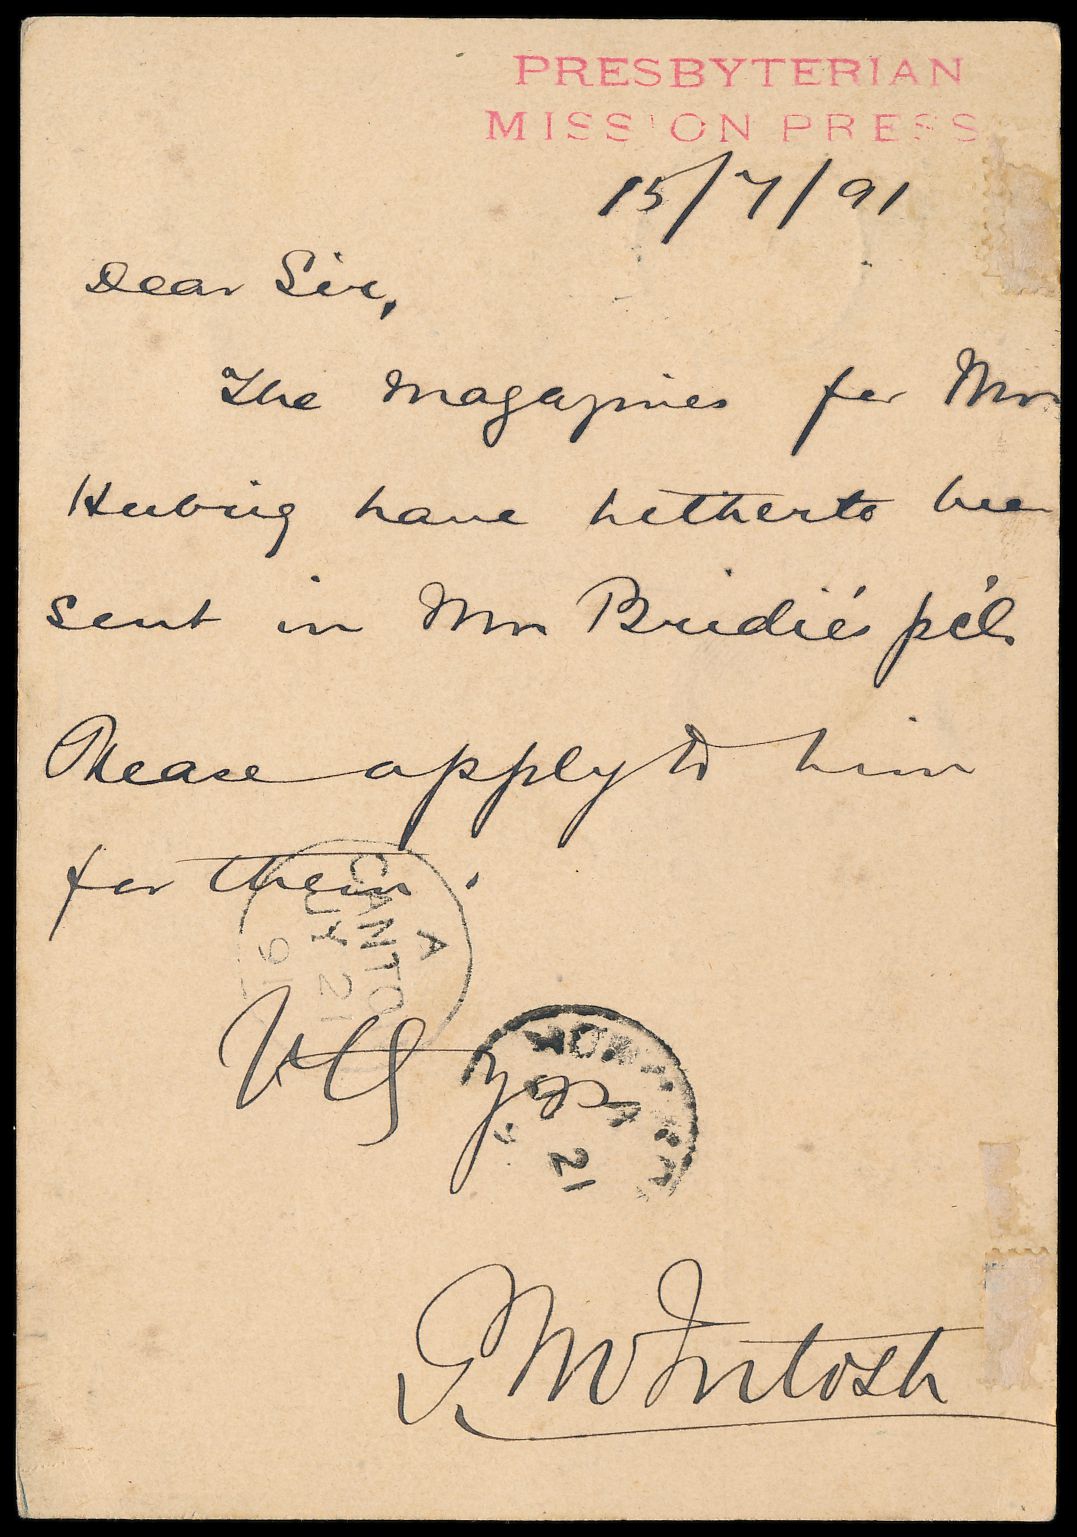 PRESBYTERIAN
MISSION PRESS
15/7/91
Dear Sir,
The Magazines for Mr
Hubrig have hitherto been
sent in Mr Bridie's p'c'l.
Please apply to him
for them.
A
CANTO
JY 21
91
21
G McIntosh